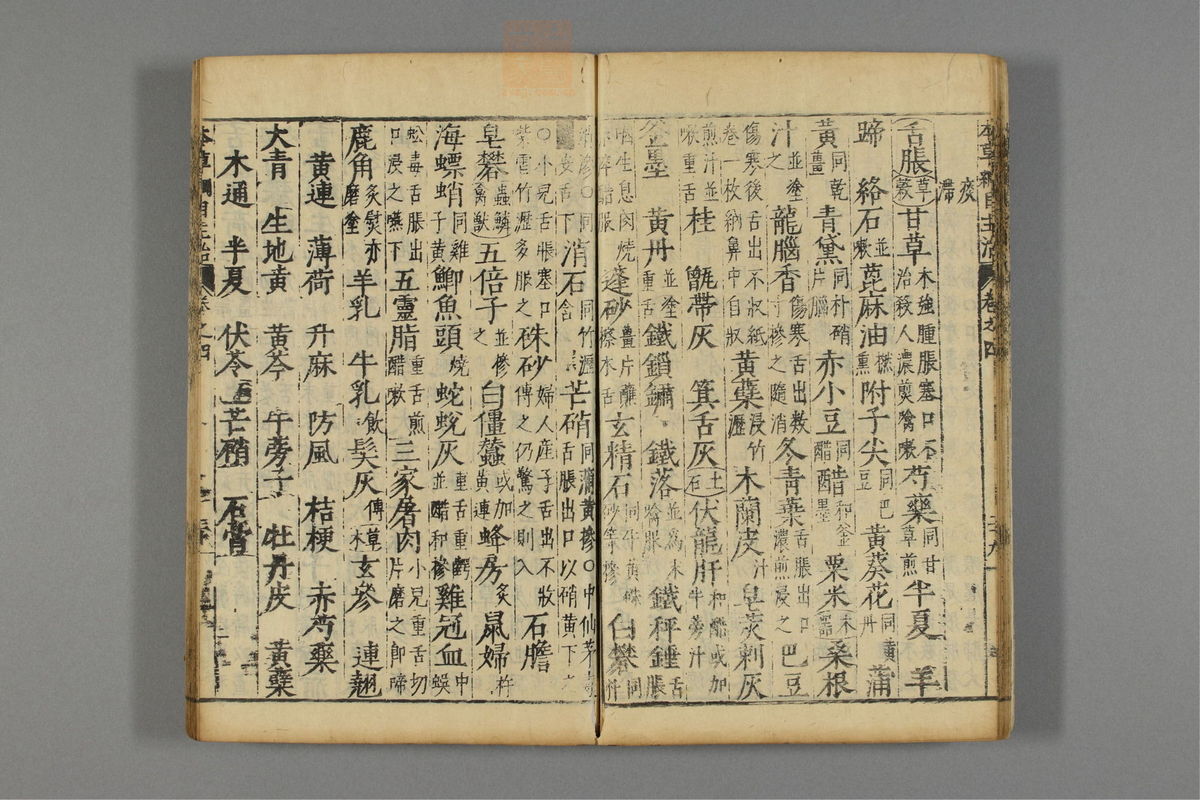 本草綱目主治 卷之四
痰滯
舌脹 草穀 甘草 木強腫脹塞口不治殺人濃煎噙漱 芍藥 同甘草煎 半夏 羊
蹄 絡石 並漱 蓖麻油 燃熏 附子尖 同巴豆 黃葵花 同黃丹 蒲
黃 同乾薑 青黛 同朴硝片腦 赤小豆 同醋 醋和釜墨 粟米 木器 桑根
汁 並塗之 龍腦香 傷寒舌出數寸摻之隨消 冬青葉 舌脹出口濃煎浸之 巴豆
傷寒後舌出不收紙卷一枚納鼻中自收 黃蘗 浸竹瀝 木蘭皮 汁 皂莢刺灰
煎汁並漱重舌 桂 甑帶灰 箕舌灰 土石 伏龍肝 和醋或加牛蒡汁
釜墨 黃丹 並塗重舌 鐵鎖 鐵落 並為末噙脹 鐵秤錘 舌脹
咽生息肉燒 淬醋 蓬砂 薑片蘸 擦木舌 玄精石 同 白礬 同
消石 同竹瀝含 芒硝 同蒲黃摻○中仙茅毒舌脹出口以硝黃下之
○小兒舌脹塞口紫雪竹瀝多服之 硃砂 婦人產子舌出不收傅之仍驚之則入 石膽
皂礬 蟲鱗禽獸 五倍子 並摻之 白僵蠶 或加黃連 蜂房 炙 鼠婦 杵
海螵蛸 同雞子黃 鯽魚頭 燒 蛇蛻灰 重舌重齶並醋和摻 雞冠血 中蜈
蚣毒舌脹出口浸之嚥下 五靈脂 重舌煎醋漱 三家屠肉 小兒重舌切片磨之即啼
鹿角 炙熨亦磨塗 羊乳 牛乳 飲 髮灰 傅 草木 玄參 連翹
黃連 薄荷 升麻 防風 桔梗 赤芍藥
大青 生地黃 黃芩 牛旁子 牡丹皮 黃蘗
木通 半夏 伏苓 芒硝 石膏
本草綱目主治 卷之四